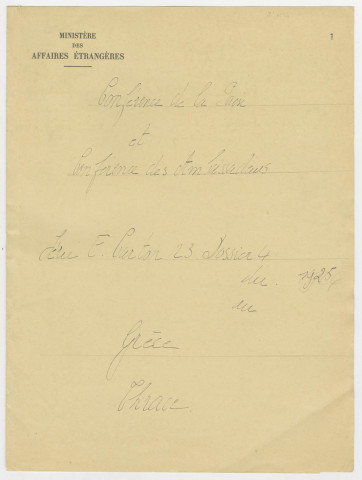 MINISTÈRE
DES
AFFAIRES ÉTRANGÈRES
1
Conférence de la Paix
et
Conférence des Ambassadeurs
Série E Carton 23 Dossier 4
du 1925
au
Grèce
Thrace.